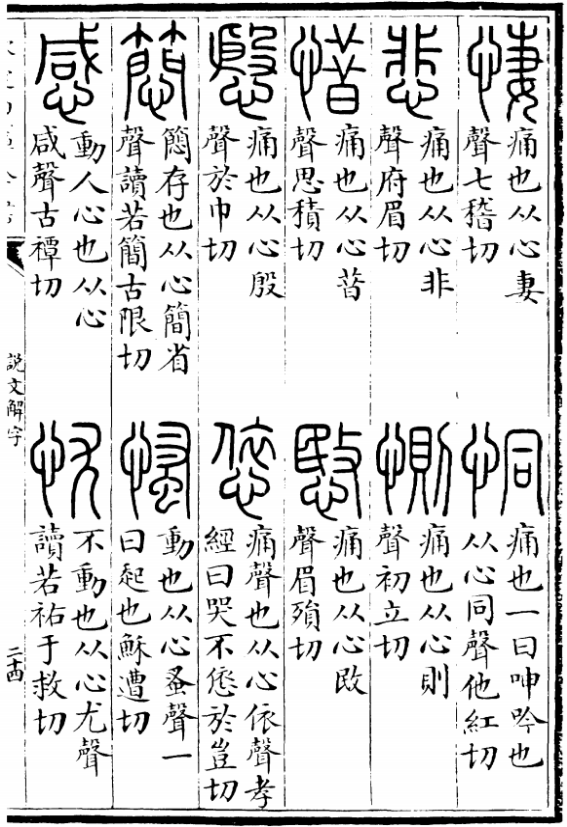 悽
痛也从心妻
聲七稽切
恫
痛也一曰呻吟也
从心同聲他紅切
悲
痛也从心非
聲府眉切
惻
痛也从心則
聲初立切
惜
痛也从心㫺
聲思積切
愍
痛也从心敃
聲眉殞切
慇
痛也从心殷
聲於巾切
㥋
痛聲也从心依聲孝
經曰哭不㥋於豈切
簡存也从心簡省
聲讀若簡古限切
慅
動也从心蚤聲一
曰起也穌遭切
感
動人心也从心
咸聲古禫切
忧
不動也从心尤聲
讀若祐于救切
說文解字
二十四